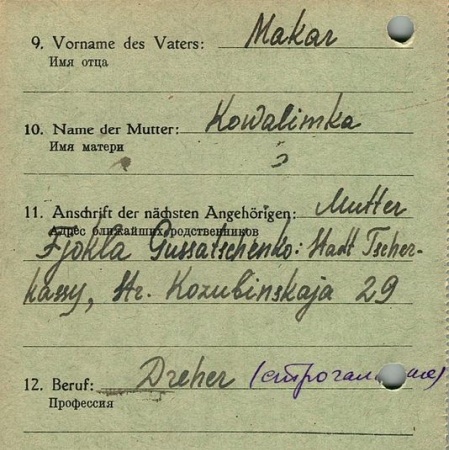 9. Vorname des Vaters: Makar
Имя отца
10. Name der Mutter: Kowalimka
Имя матери
11. Anschrift der nächsten Angehörigen: Mutter
Адрес ближайших родственников
Fjokla Gussatschenko: Stadt Tscher-
kassy, Str. Kozubinskaja 29
12. Beruf: Dreher
Профессия